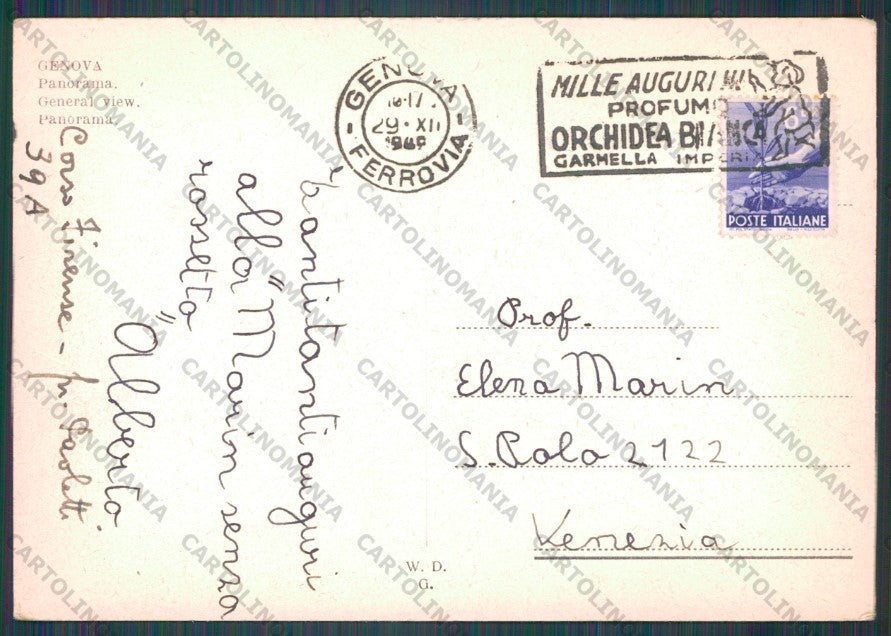 GENOVA
Panorama.
General view.
Panorama.
GENOVA
16-17
29·XII
FERROVIA
MILLE AUGURI
PROFUMO
ORCHIDEA BIANCA
GARMELLA IMPERIA
POSTE ITALIANE
Tanti tanti auguri
alla "Marin senza
rossetto"
Alberto
Corso Firenze - pr. Paoletti
39 A
Prof.
Elena Marin
S. Polo 2122
Venezia
W. D.
G.
CARTOLINOMANIA